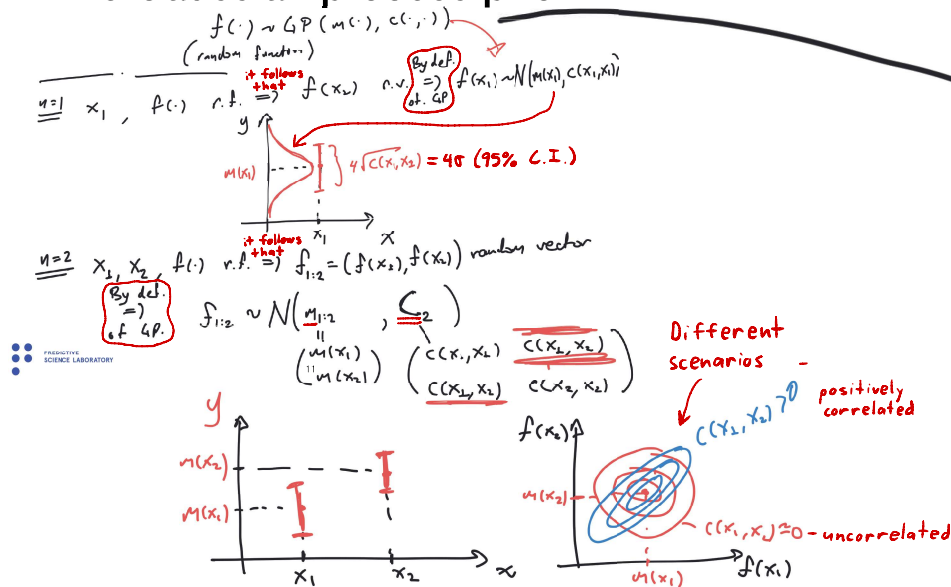 f(·) ~ GP(m(·), c(·,·))
(random function)
n=1 x₁, f(·) r.f. it follows that => f(x₁) r.v. By def. => of GP. f(x₁) ~ N(m(x₁), c(x₁,x₁))
y
m(x₁) 4√c(x₁,x₂) = 4σ (95% C.I.)
x₁ x
n=2 x₁, x₂, f(·) r.f. it follows that => f₁:₂ = (f(x₁), f(x₂)) random vector
By def. => of GP. f₁:₂ ~ N(m₁:₂, C₂)
(m(x₁) m(x₂))
(c(x₁,x₂) c(x₁,x₂)
c(x₁,x₂) c(x₂,x₂))
PREDICTIVE
SCIENCE LABORATORY
Different
scenarios -
c(x₁,x₂)>0 positively
correlated
y
m(x₂)
m(x₁)
x₁ x₂ x
f(x₂)
m(x₂)
c(x₁,x₂)≈0 - uncorrelated
m(x₁) f(x₁)